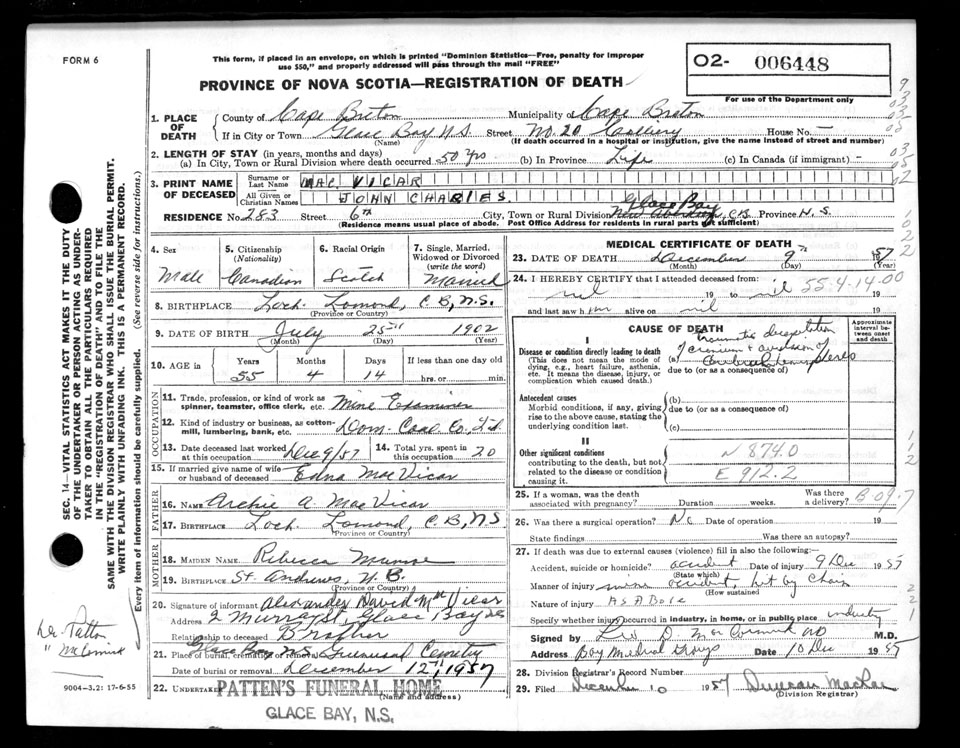 FORM 6
This form, if placed in an envelope, on which is printed "Dominion Statistics—Free, penalty for improper
use $50," and properly addressed will pass through the mail "FREE"
O2- 006448
For use of the Department only
PROVINCE OF NOVA SCOTIA—REGISTRATION OF DEATH
1. PLACE OF DEATH
County of Cape Breton Municipality of Cape Breton
If in City or Town Glace Bay N.S. Street No. 20 Colliery House No. —
(Name) (If death occurred in a hospital or institution, give the name instead of street and number)
2. LENGTH OF STAY (in years, months and days)
(a) In City, Town or Rural Division where death occurred 50 yrs (b) In Province Life (c) In Canada (if immigrant) -
3. PRINT NAME OF DECEASED
Surname or Last Name MAC VICAR
All Given or Christian Names JOHN CHARLES.
RESIDENCE No. 283 Street 6th City, Town or Rural Division Glace Bay New Aberdeen, C.B. Province N.S.
(Residence means usual place of abode. Post Office Address for residents in rural parts not sufficient)
4. Sex
Male
5. Citizenship (Nationality)
Canadian
6. Racial Origin
Scotch
7. Single, Married, Widowed or Divorced (write the word)
Married
8. BIRTHPLACE Loch Lomond, C B, N.S.
(Province or Country)
9. DATE OF BIRTH July 25th 1902
(Month) (Day) (Year)
10. AGE in Years Months Days If less than one day old
55 4 14 hrs. or min.
OCCUPATION
11. Trade, profession, or kind of work as spinner, teamster, office clerk, etc. Mine Examiner
12. Kind of industry or business, as cotton-mill, lumbering, bank, etc. Dom. Coal Co. Ltd
13. Date deceased last worked at this occupation Dec 9/57
14. Total yrs. spent in this occupation 20
15. If married give name of wife or husband of deceased Edna MacVicar
FATHER
16. NAME Archie A. MacVicar
17. BIRTHPLACE Loch Lomond, C B, N S
(Province or Country)
MOTHER
18. MAIDEN NAME Rebecca Munroe
19. BIRTHPLACE St. Andrews, N.B.
(Province or Country)
20. Signature of informant Alexander David McVicar
Address 2 Murray St, Glace Bay NS
Relationship to deceased Brother
21. Place of burial, cremation or removal Glace Bay N.S. Greenwood Cemetery
Date of burial or removal December 12th, 1957
22. UNDERTAKER PATTEN'S FUNERAL HOME
(Name and address)
GLACE BAY, N.S.
MEDICAL CERTIFICATE OF DEATH
23. DATE OF DEATH December 9th 1957
(Month) (Day) (Year)
24. I HEREBY CERTIFY that I attended deceased from
nil 19 to nil 19
55-4-14-00
and last saw him alive on nil 19
CAUSE OF DEATH
Approximate interval between onset and death
I
Disease or condition directly leading to death
(This does not mean the mode of dying, e.g., heart failure, asthenia, etc. It means the disease, injury, or complication which caused death.
(a) traumatic decapitation of cranium & avulsion of Cerebral hemispheres
due to (or as a consequence of)
Antecedent causes
Morbid conditions, if any, giving rise to the above cause, stating the underlying condition last.
(b)
due to (or as a consequence of)
(c)
II
Other significant conditions
contributing to the death, but not related to the disease or condition causing it.
N 874.0
E 912.2
25. If a woman, was the death associated with pregnancy? Duration weeks. Was there a delivery?
B 09-7
26. Was there a surgical operation? No Date of operation 19
State findings Was there an autopsy?
27. If death was due to external causes (violence) fill in also the following:
Accident, suicide or homicide? accident Date of injury 9 Dec 1957
(State which)
Manner of injury mine accident, hit by Chain
(How sustained)
Nature of injury As Above
Specify whether injury occurred in industry, in home, or in public place industry
Signed by M.D.
Address Bay Medical Group Date 10 Dec 1957
28. Division Registrar's Record Number
29. Filed December 10 1957 Duncan MacRae
(Division Registrar)
SEC. 14—VITAL STATISTICS ACT MAKES IT THE DUTY
OF THE UNDERTAKER OR PERSON ACTING AS UNDER-
TAKER TO OBTAIN ALL THE PARTICULARS REQUIRED
IN THE "REGISTRATION OF DEATH" AND TO FILE THE
SAME WITH THE DIVISION REGISTRAR WHO SHALL ISSUE THE BURIAL PERMIT.
WRITE PLAINLY WITH UNFADING INK. THIS IS A PERMANENT RECORD.
Every item of information should be carefully supplied. (See reverse side for instructions.)
Dr. Patton
" McCormick
9004-3.2: 17-6-55